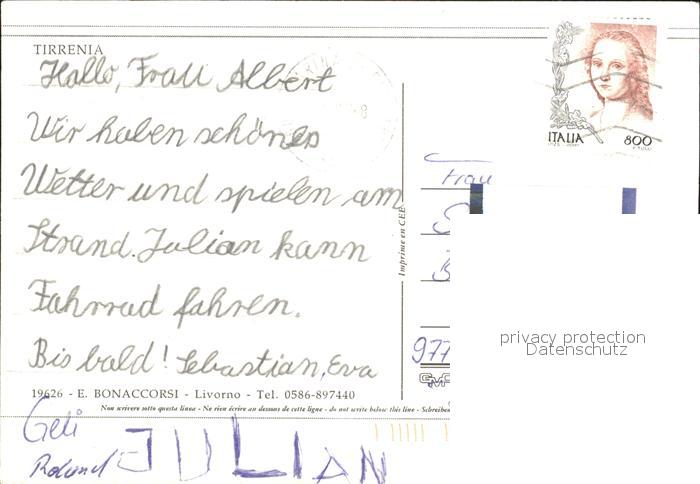 TIRRENIA
Hallo, Frau Albert
Wir haben schönes
Wetter und spielen am
Strand. Julian kann
Fahrrad fahren.
Bis bald! Sebastian, Eva
19626 - E. BONACCORSI - Livorno - Tel. 0586-897440
Non scrivere sotto questa linea - Ne rien écrire au dessous de cette ligne - do not write below this line - Schreiben
Geli
Roland JULIAN
Imprimé en CEE
ITALIA 800
Frau
977
privacy protection
Datenschutz